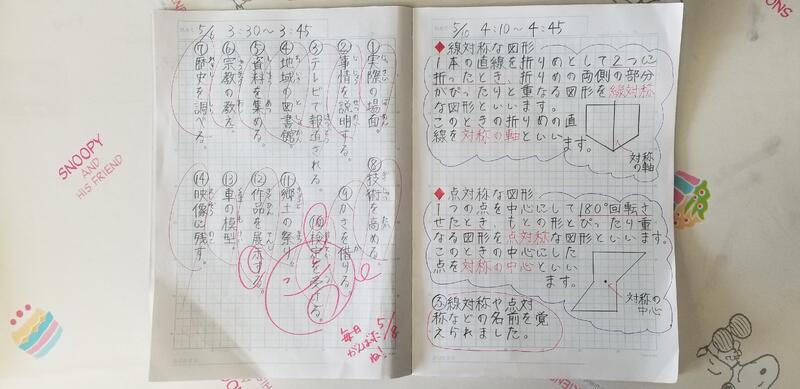 5/6 3:30〜3:45
①実際の場面。
②事情を説明する。
③テレビで報道される。
④地域の図書館。
⑤資料を集める。
⑥宗教の教え。
⑦歴史を調べる。
⑧技術を高める。
⑨かさを借りる。
⑩検定を受ける。
⑪郷土の祭り。
⑫作品を展示する。
⑬車の模型。
⑭映像に残す。
毎日
がんばったね!
5/8
5/10 4:10〜4:45
◆線対称な図形
1本の直線を折りめとして2つに
折ったとき、折りめの両側の部分
がぴったりと重なる図形を線対称
な図形といいます。
このときの折りめの直
線を対称の軸といい
ます。
対称
の軸
◆点対称な図形
1つの点を中心にして180°回転さ
せたとき、もとの形とぴったり重
なる図形を点対称な図形といいます。
このときの中心にした
点を対称の中心といい
ます。
対称の
中心
線対称や点対
称などの名前を覚
えられました。
SNOOPY
AND
HIS FRIEND